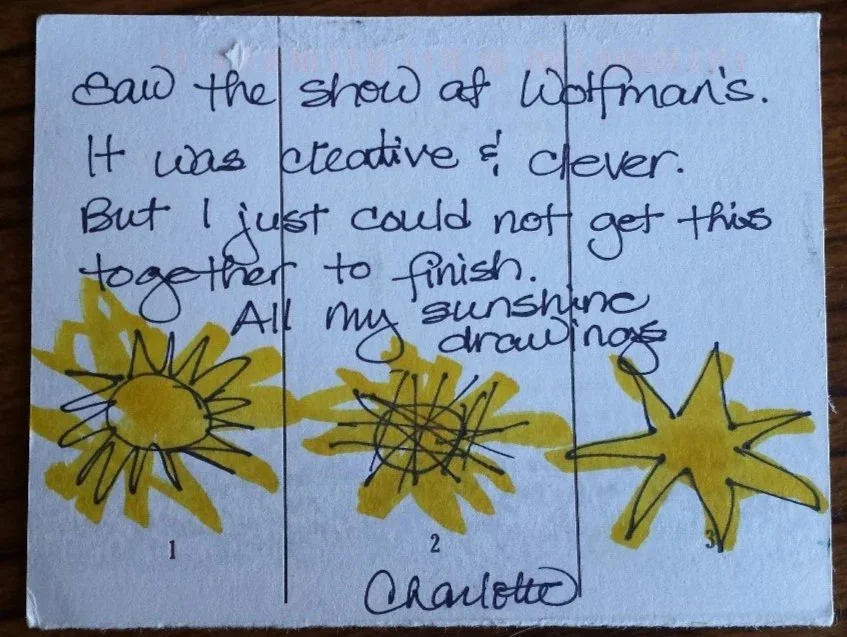 Saw the show at Wolfman's.
It was creative & clever.
But I just could not get this
together to finish.
All my sunshine
drawings
1 2 3
Charlotte